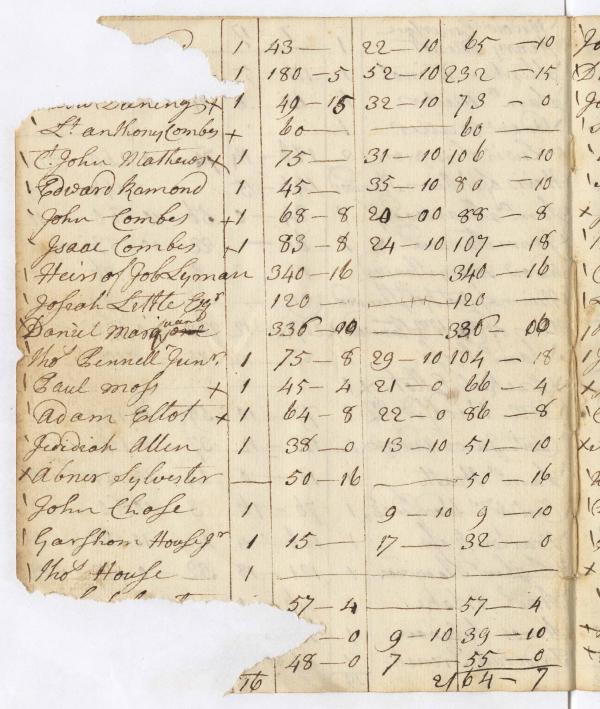 1 43 — 22 — 10 65 — 10
1 180 — 5 52 — 10 232 — 15
Duning x 1 49 — 15 32 — 10 73 — 0
Lt anthony Combes x 60 — — 60 —
C. John Mathews x 1 75 — 31 — 10 106 — 10
Edward Ramond 1 45 — 35 — 10 80 — 10
John Combes x 1 68 — 8 20 — 00 88 — 8
Isaac Combes x 1 83 — 8 24 — 10 107 — 18
Heirs of Job Lyman 340 — 16 — 340 — 16
Josiah Little Esqr 120 — — 120 —
Daniel 336 — 00 336 — 00
Thos Pennell Junr. 1 75 — 8 29 — 10 104 — 18
Paul Moss x 1 45 — 4 21 — 0 66 — 4
Adam Eltot x 1 64 — 8 22 — 0 86 — 8
Jedidiah Allen 1 38 — 0 13 — 10 51 — 10
x Abner Sylvester — 50 — 16 — 50 — 16
John Chase 1 9 — 10 9 — 10
Garshom House Jr 1 15 — 17 — 32 — 0
Thos House 1 — — —
57 — 4 — 57 — 4
— 0 9 — 10 39 — 10
48 — 0 7 — 55 — 0
16 2164 — 7